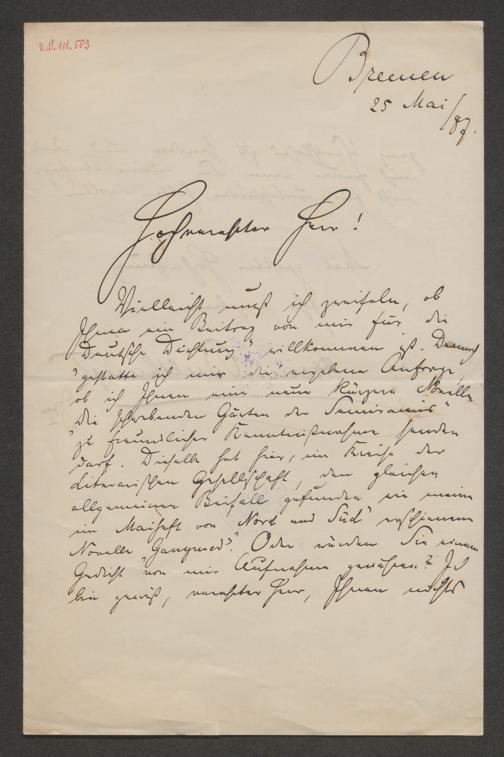 I.N. 111.503
Bremen
25 Mai/87.
Hochverehrter Herr!
Vielleicht muß ich zweifeln, ob
Ihnen ein Beitrag von mir für die
"Deutsche Dichtung" willkommen ist. Dennoch
gestatte ich mir die ergebene Anfrage
ob ich Ihnen eine neue kürzere Novelle
"Die schwebenden Gärten der Semiramis"
zu freundlicher Kenntnißnahme senden
darf. Dieselbe hat hier, im Kreise der
literarischen Gesellschaft, den gleichen
allgemeinen Beifall gefunden wie meine
im Maiheft von "Nord und Süd" erschienene
Novelle "Ganymed". Oder würden Sie einem
Gedicht von mir Aufnahme gewähren? Ich
bin gewiß, verehrter Herr, Ihnen nichts